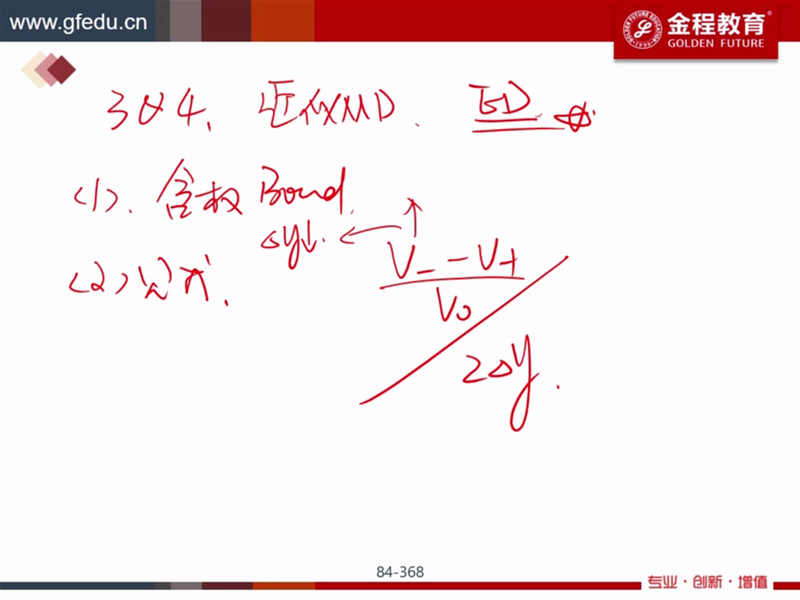 www.gfedu.cn
金程教育
GOLDEN FUTURE
3&4. 近似MD. ED
(1). 含权 Bond.
Δy↓. ← ↑
(2) 公式. V₋ - V₊
V₀
2Δy.
84-368
专业·创新·增值